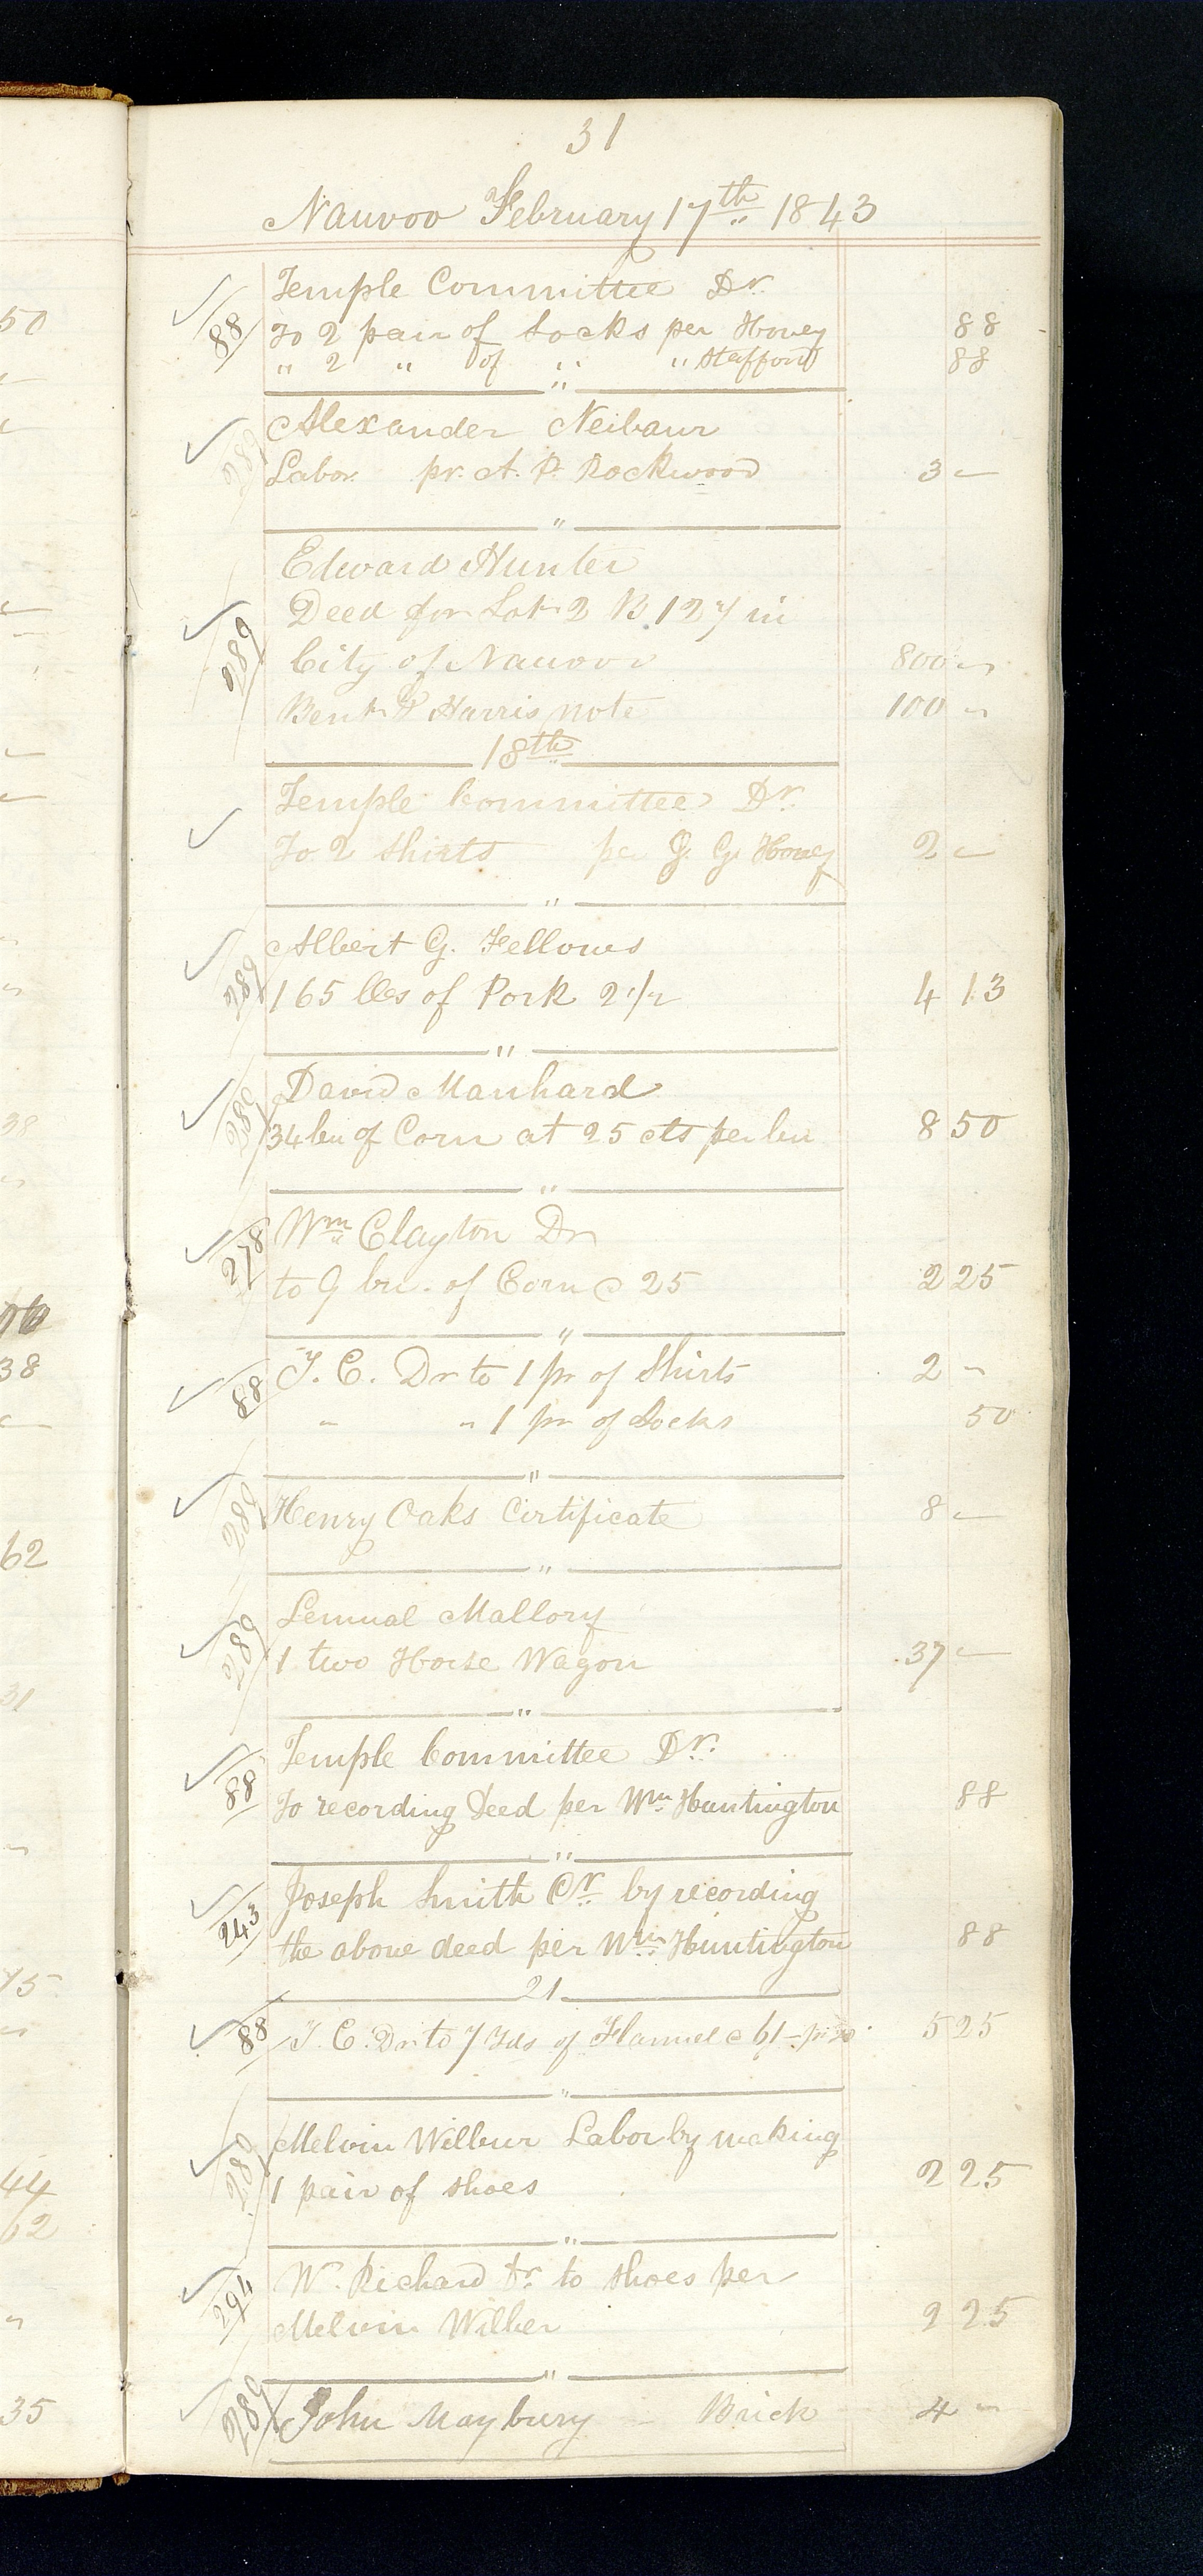 31
Nauvoo February 17th 1843
Temple Committee Dr.
88 To 2 pair of Socks per Hovey 88
" 2 " of " " Stafford 88
"
Alexander Neibaur
Labor pr. A. P. Rockwood 3 —
"
Edward Hunter
Deed for Lot 2 B. 127 in
289 City of Nauvoo 800 "
Bent. F Harris note 100 "
18th
Temple Committee Dr.
To 2 Shirts per J. G. Hovey 2 —
"
Albert G. Fellows
289 165 lbs of Pork 2 1/2 4 13
"
David Manhard
289 34 bu of Corn at 25 cts per bu 8 50
"
278 Wm Clayton Dr
to 9 bu. of Corn @ 25 2 25
"
88 T. C. Dr to 1 pr of Shirts 2 "
" " 1 pr of Socks 50
"
289 Henry Oaks Certificate 8 —
"
Lemual Mallory
289 1 two Horse Wagon 37 —
"
Temple Committee Dr.
88 To recording Deed per Wm Huntington 88
"
Joseph Smith Cr. by recording
243 the above deed per Wm Huntington 88
21
88 T. C. Dr to 7 Yds of Flannel @ 6/– 5 25
"
Melvin Wilbur Labor by making
289 1 pair of shoes 2 25
"
294 W. Richard Dr. to Shoes per
Melvin Wilber 2 25
"
289 John Maybury – Brick 4 "
50
38
38
62
31
75
44
62
35